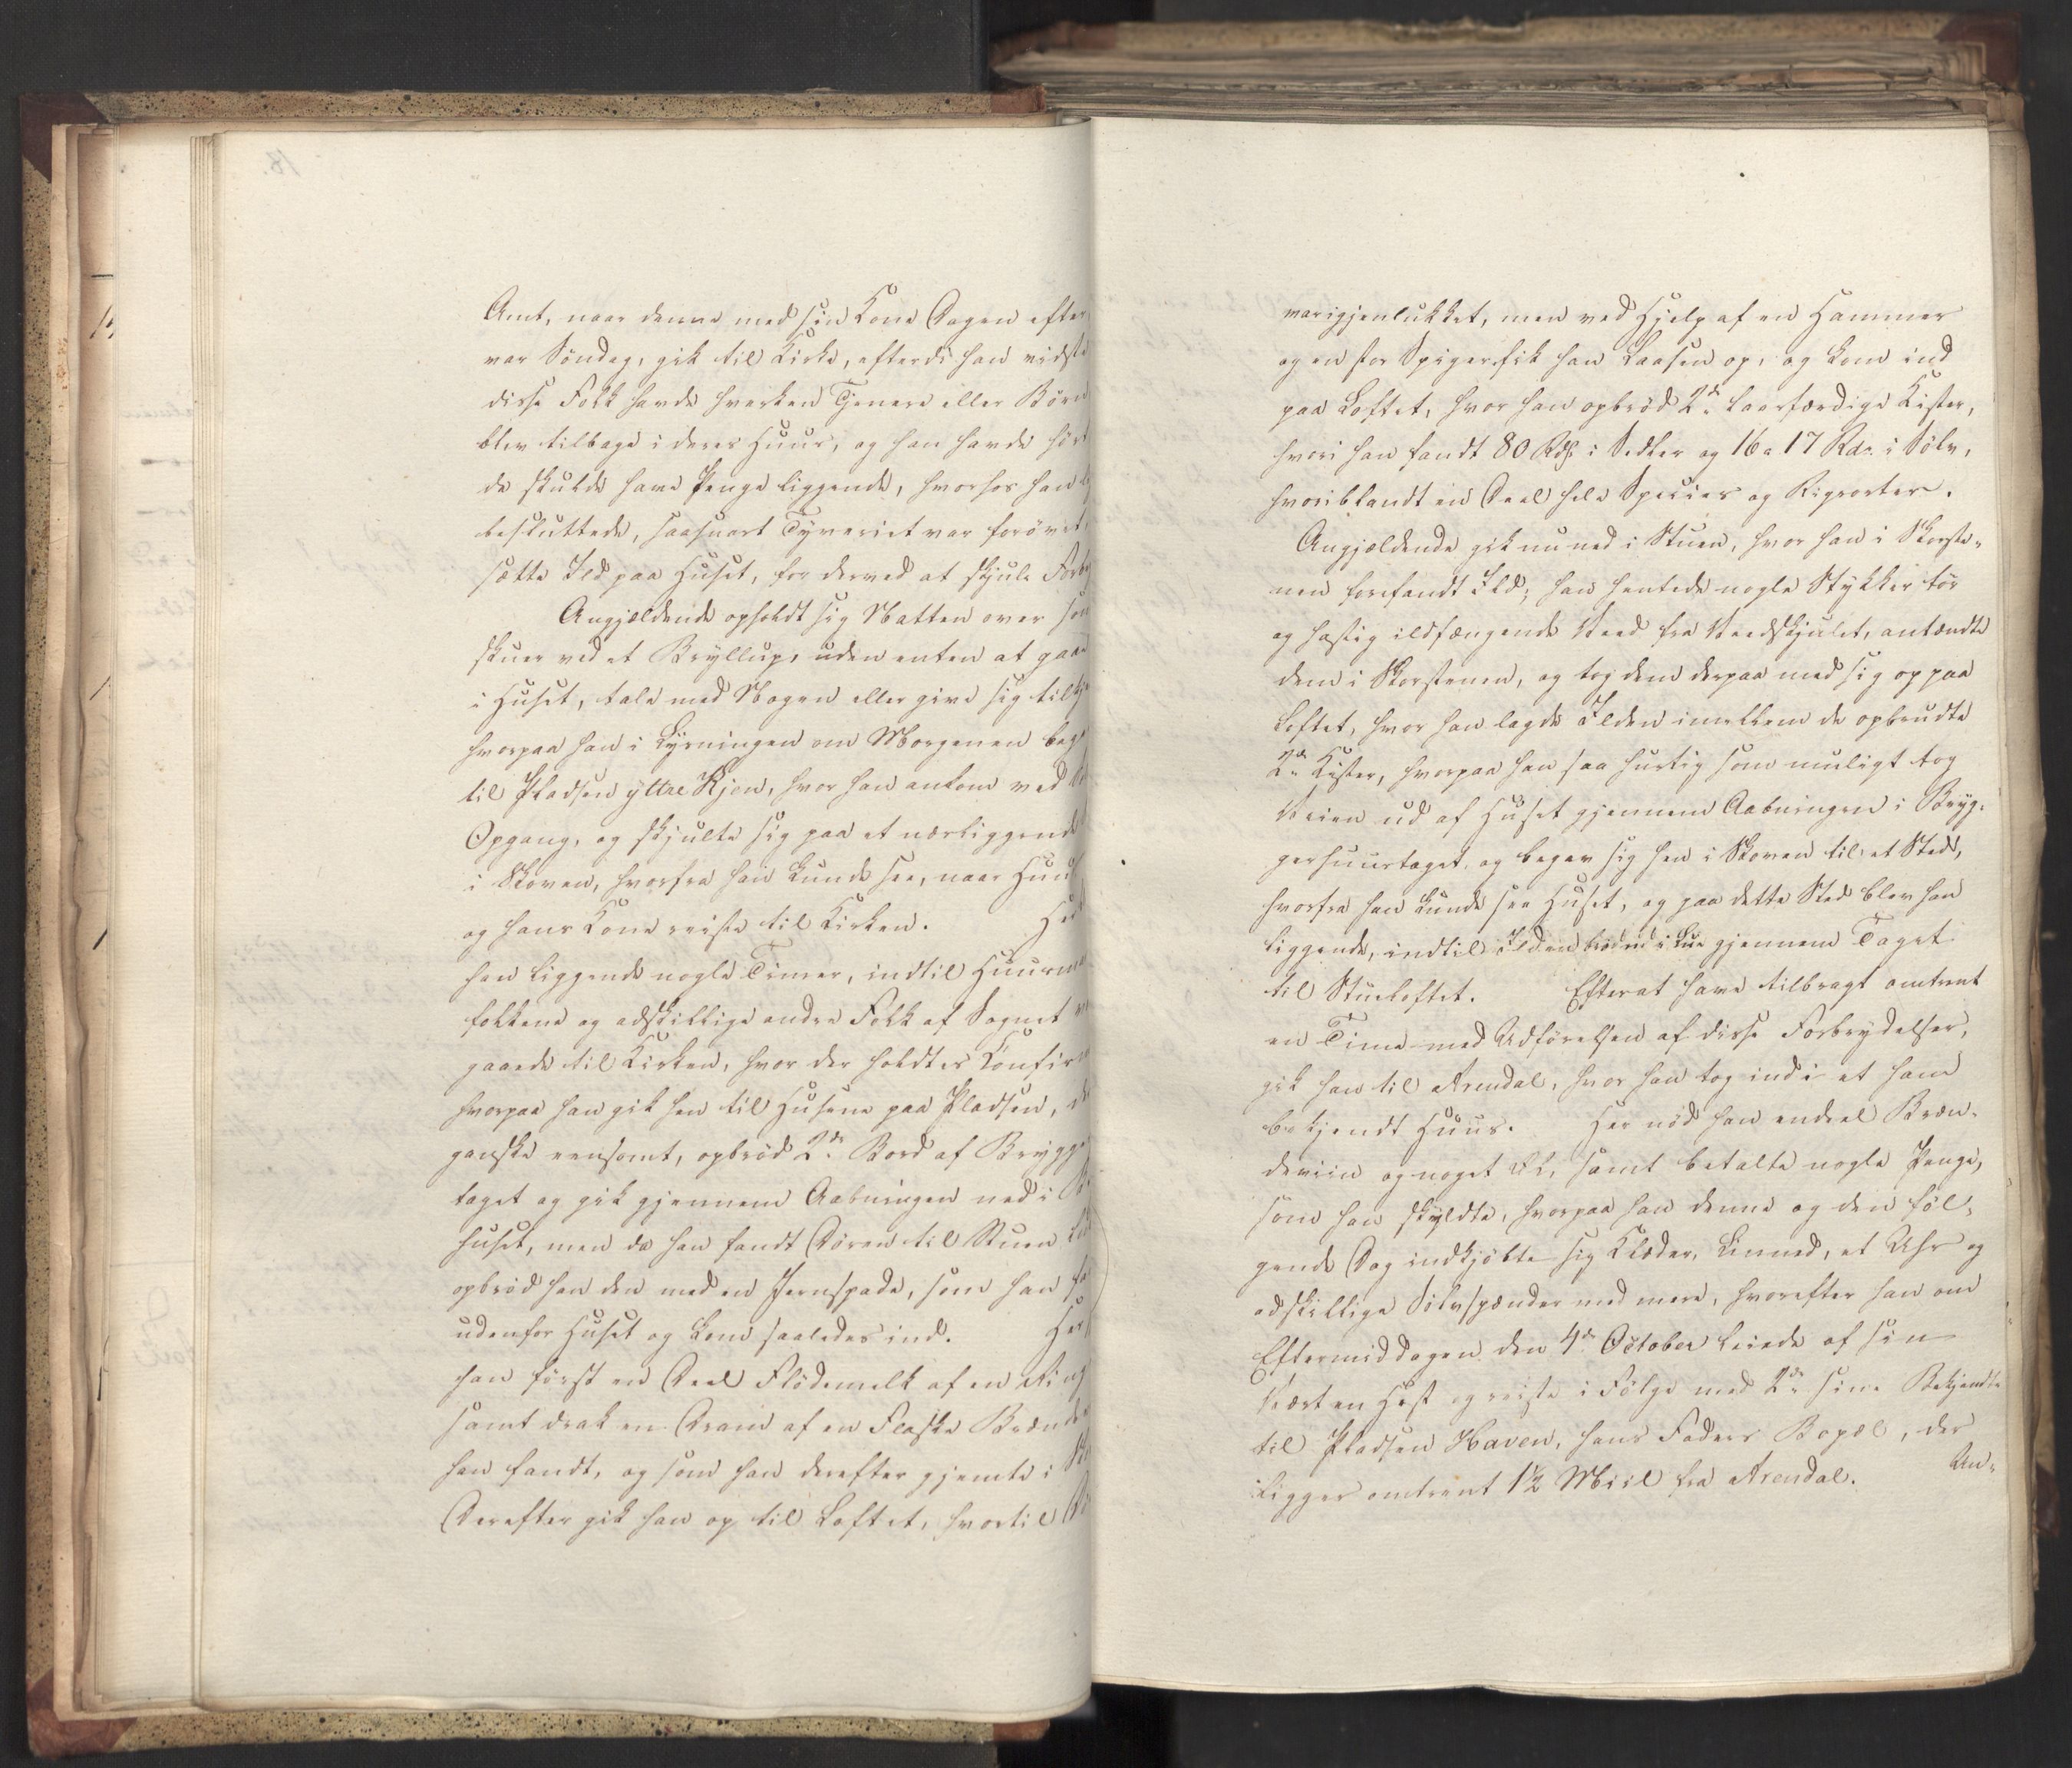 Amt, naar denne med sin Kone Dagen efter
var Söndag, gik til Kirke, efterdi han vidste
disse Folk havde hverken Tjenere eller Börn
blev tilbage i deres Huus, og han havde hört
de skulde have Penge liggende, hvorhos han
besluttede, saasnart Tyveriet var forövet,
sætte Ild paa Huset, for derved at skjule
Angjældende opholdt sig Natten over som
skuer ved et Bryllup, uden enten at gaae
i Huset, tale med Nogen eller give sig
hvorpaa han i Lysningen om Morgenen
til Pladsen yttre Kjen, hvor han ankom ved
Opgang, og skjulte sig paa et nærliggende
i Skoven, hvorfra han kunde see, naar
og hans Kone reiste til Kirken. Her
han liggende nogle Timer, indtil
folkene og adskillige andre Folk af Sognet
gaaede til Kirken, hvor der holdtes
hvorpaa han gik hen til Husene paa Pladsen,
ganske eensomt, opbröd 2de Bord af
taget og gik gjennem Aabningen ned i
huset, men da han fandt Dören til Stuen
opbröd han den med en Jernspade, som han
udenfor Huset og kom saaledes ind. Her
han först en Deel Flödemelk af en
samt drak en Dram af en Flaske
han fandt, og som han derefter gjemte i
Derefter gik han op til Loftet, hvortil
var igjenlukket, men ved Hjelp af en Hammer
og en stor Spiger fik han Laasen op, og kom ind
paa Loftet, hvor han opbröd 2de laasfærdige Kister,
hvori han fandt 80 Rdr i Sedler og 16 a 17 Rdr. i Sölv,
hvoriblandt en Deel hele Species og Rigsorter.
Angjældende gik nu ned i Stuen, hvor han i Skorste-
nen forefandt Ild; han hentede nogle Stykker tör
og hastig ildfængende Veed fra Veedskjulet, antændte
dem i Skorstenen, og tog dem derpaa med sig op paa
Loftet, hvor han lagde Ilden imellem de opbrudte
2de Kister, hvorpaa han saa hurtig som muligt tog
Veien ud af Huset gjennem Aabningen i Bryg-
gerhuustaget og begav sig hen i Skoven til et Sted,
hvorfra han kunde see Huset, og paa dette Sted blev han
liggende, indtil Ilden bröd ud i Lue gjennem Taget
til Stueloftet. Efter at have tilbragt omtrent
en Time med Udförelsen af disse Forbrydelser,
gik han til Arendal, hvor han tog ind i et ham
bekjendt Huus. Her nöd han endeel Bræn-
deviin og noget Öl, samt betalte nogle Penge,
som han skyldte, hvorpaa han denne og den föl-
gende Dag indkjöbte sig Klæder, Linned, et Uhr og
adskillige Sölvspænder med mere, hvorefter han om
Eftermiddagen den 4de October leiede af sin
Vært en Hest og reiste i Fölge med 2de sine Bekjendte
til Pladsen Haven, hans Faders Bopæl, der
ligger omtrent 1½ Miil fra Arendal.
An-